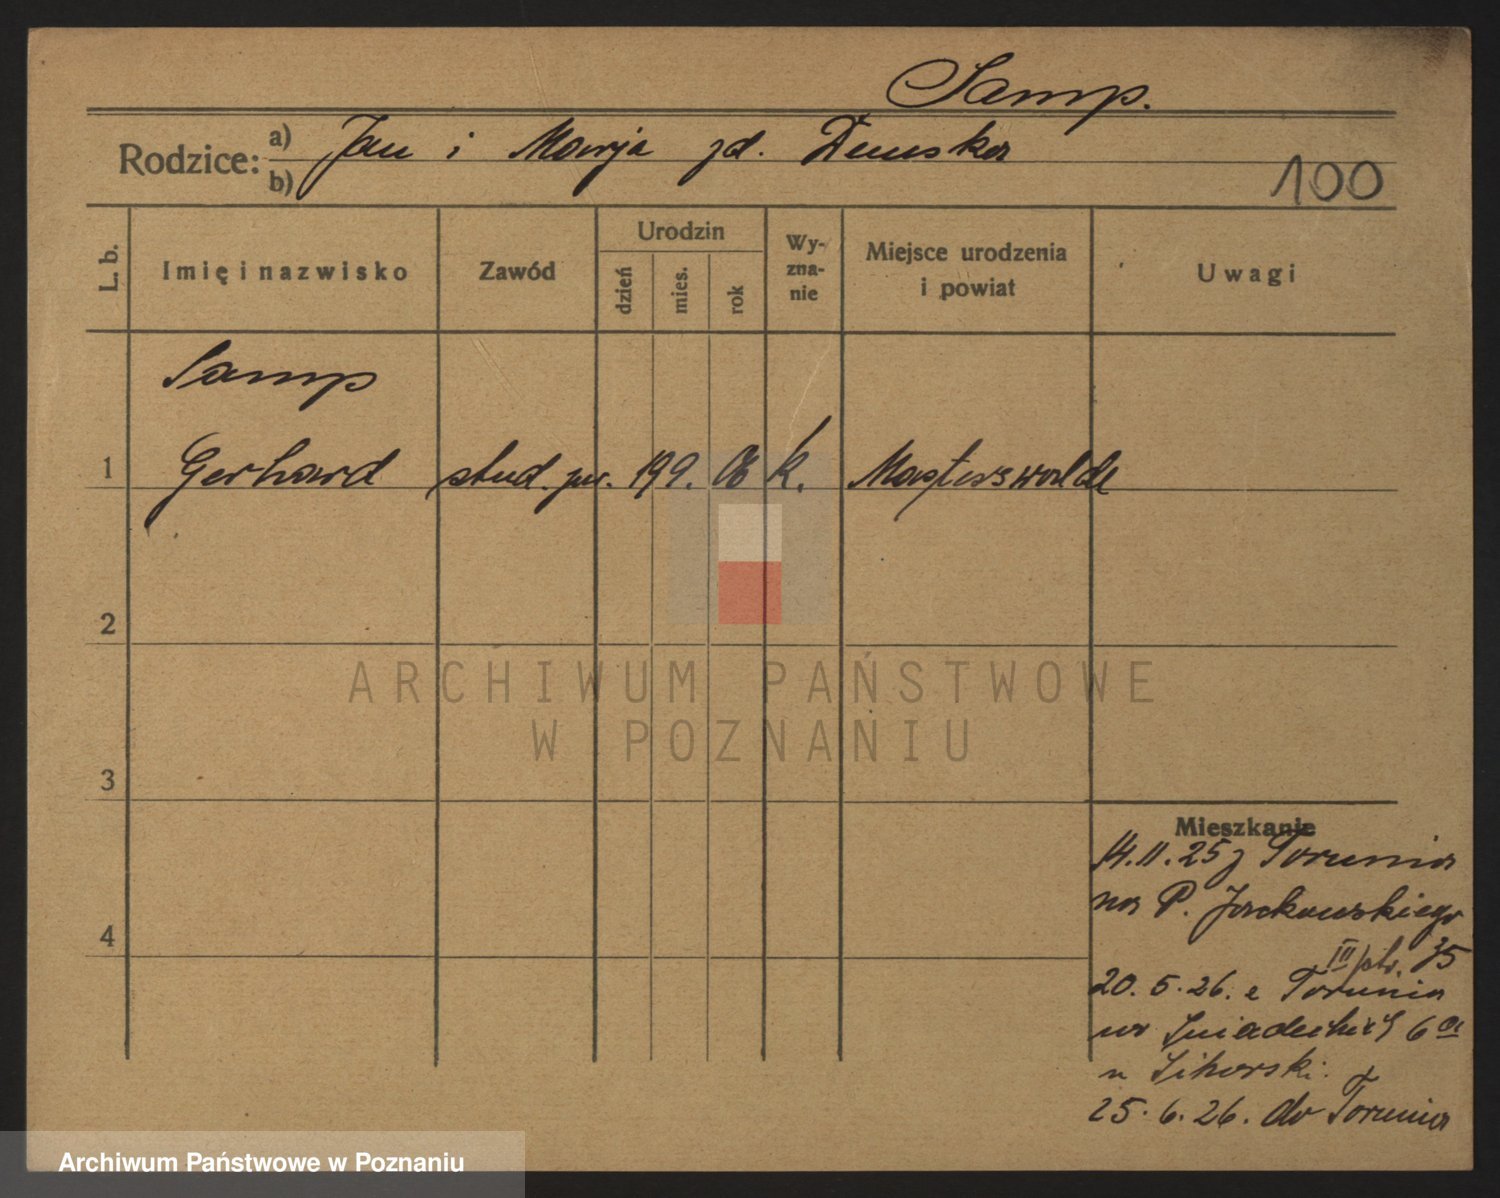 Samp.
Rodzice: a) Jan i Marja zd. Demska
b)
100
L. b. Imię i nazwisko Zawód Urodzin dzień mies. rok Wy-zna-nie Miejsce urodzenia i powiat Uwagi
Samp
1 Gerhard stud. pr. 19 9. 06 k.
2
ARCHIWUM PAŃSTWOWE
W POZNANIU
3
Mieszkanie
14.11.25 z Torunia
na P. Jackowskiego
III ptr. 35
4
20.5.26. z Torunia
na Śniadeckich 6a
u Sikorski.
25.6.26. do Torunia
Archiwum Państwowe w Poznaniu